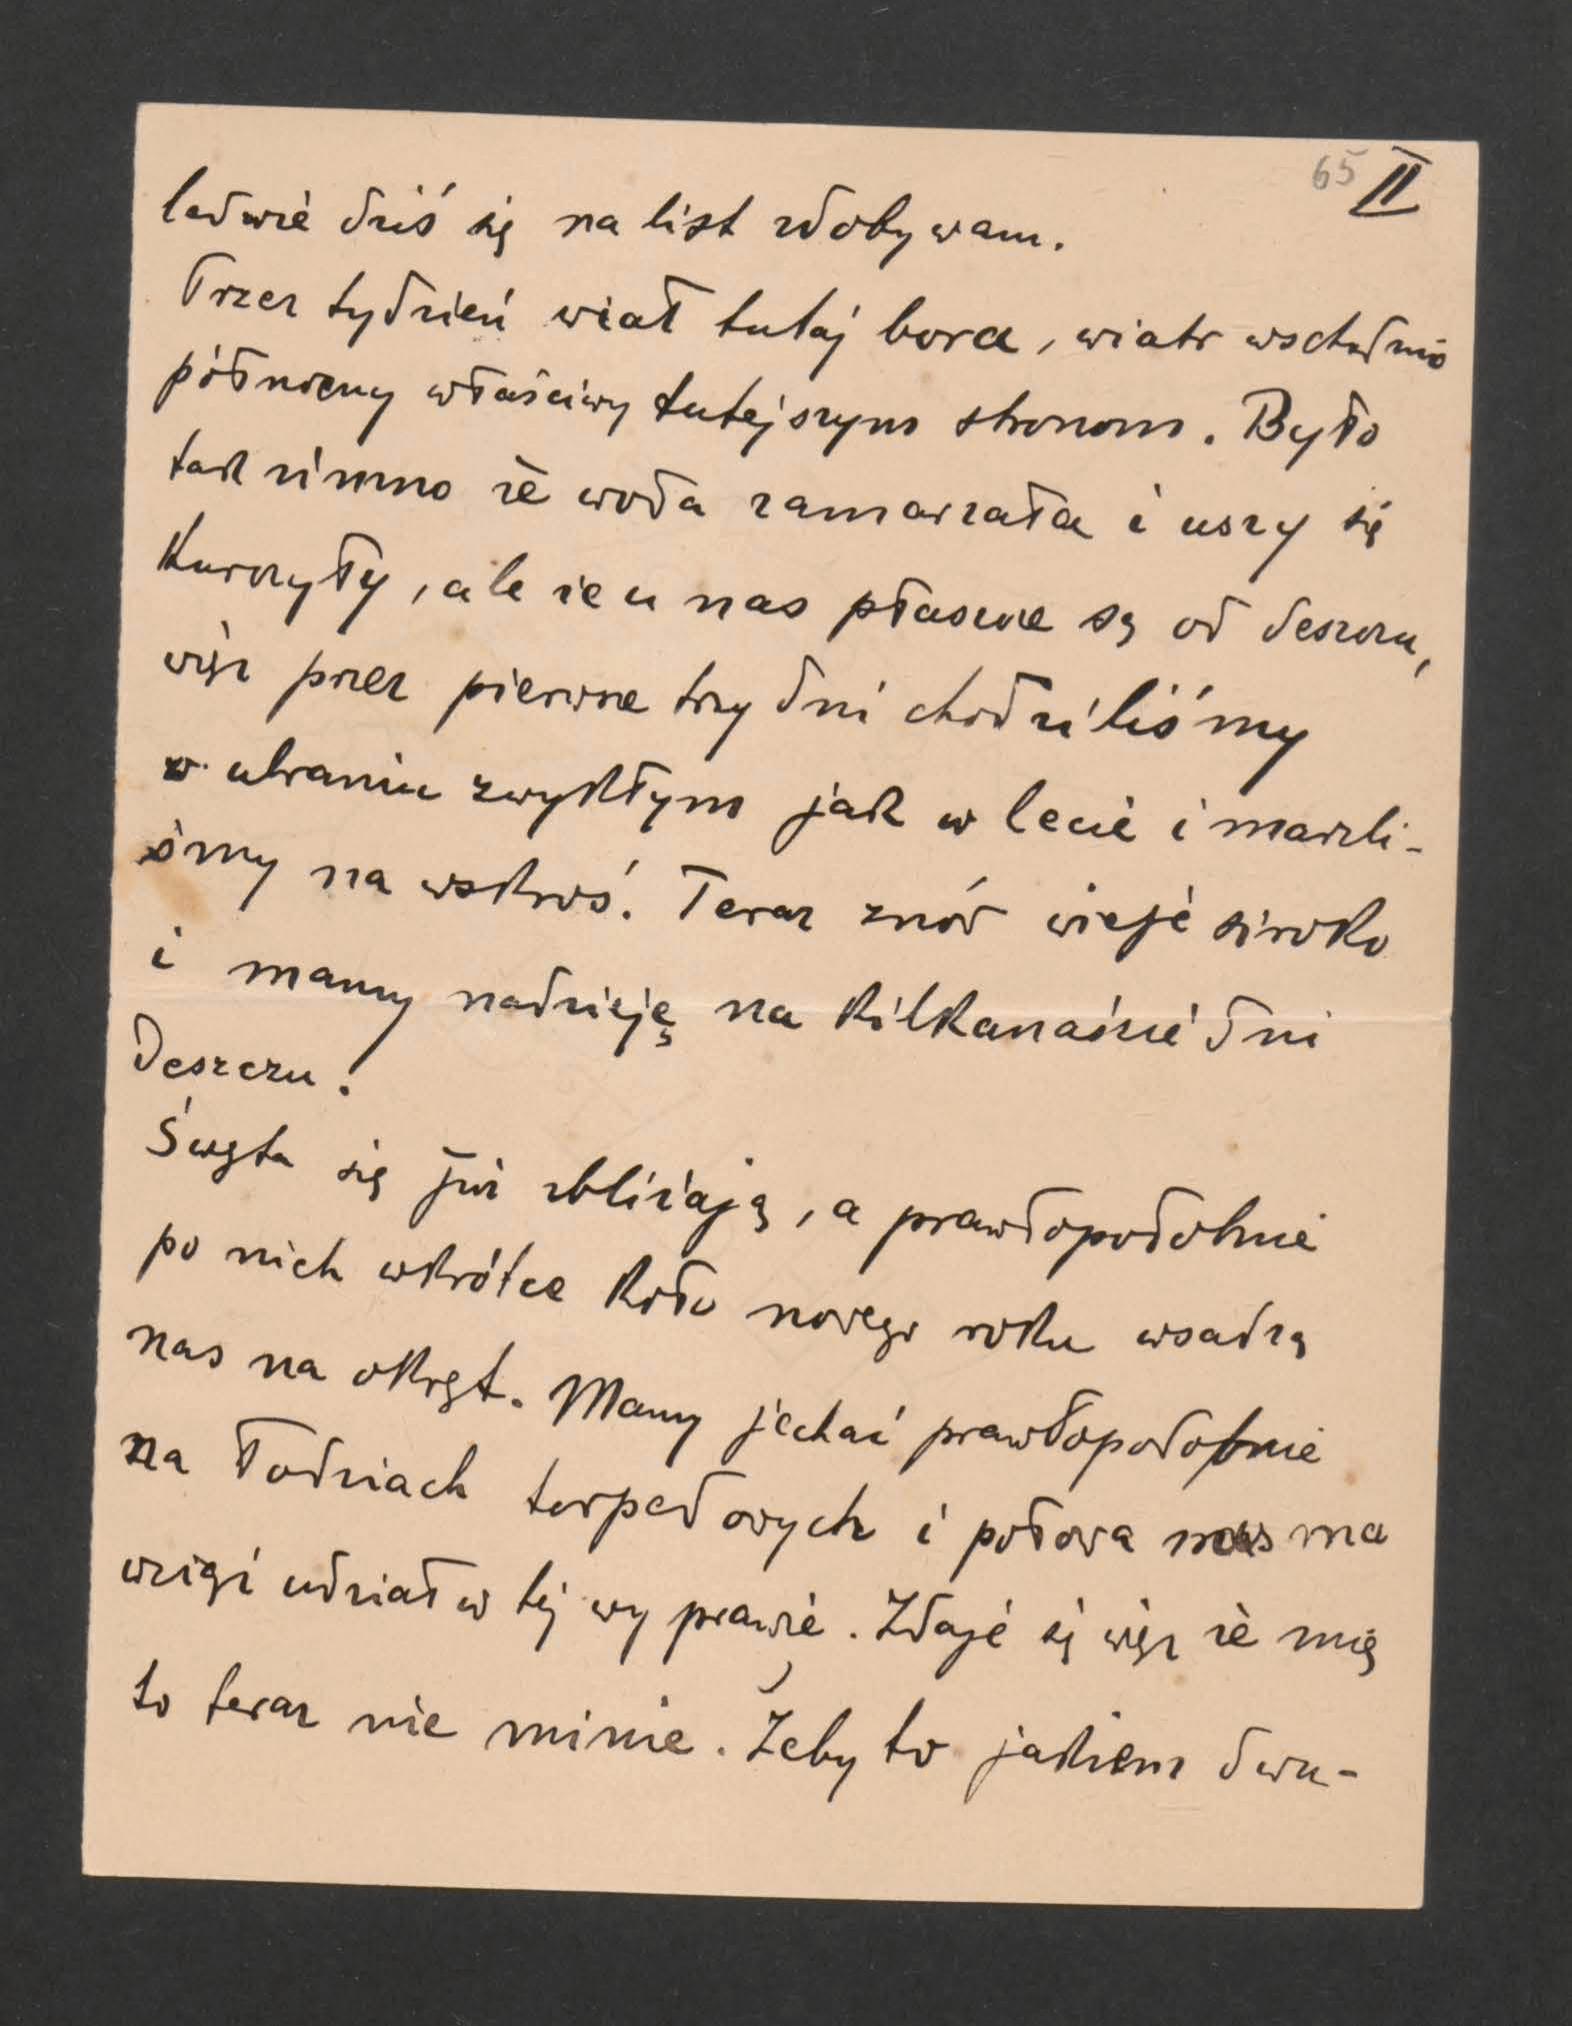 65 II
ledwie dziś się na list zdobywam.
Przez tydzień wiał tutaj bora, wiatr wschodnio
północny właściwy tutejszym stronom. Było
tak zimno że woda zamarzała i uszy się
kurczyły, ale że u nas płaszcze są od deszczu,
więc przez pierwsze trzy dni chodziliśmy
w ubraniu zwykłym jak w lecie i marzli-
śmy na wskroś. Teraz znów wieje siroko
i mamy nadzieję na kilkanaście dni
deszczu.
Święta się już zbliżają, a prawdopodobnie
po nich wkrótce koło nowego roku wsadzą
nas na okręt. Mamy jechać prawdopodobnie
na łodziach torpedowych i połowa nas ma
wziąć udział w tej wyprawie. Zdaje się więc że mię
to teraz nie minie. Żeby to jakiem dwu-